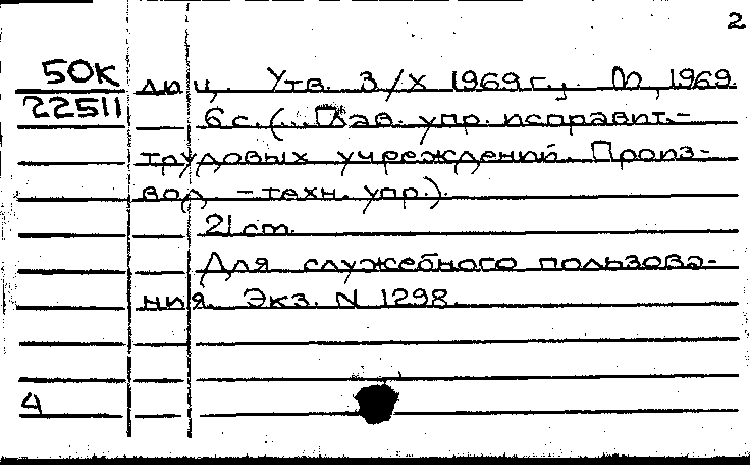 2
50К люц. Утв. 3/X 1969 г., М, 1969.
22511 6 с. (... Глав. упр. исправит.-
трудовых учреждений. Произ-
вод. - техн. упр.).
21 cm.
Для служебного пользова-
ния. Экз. N 1298.
4